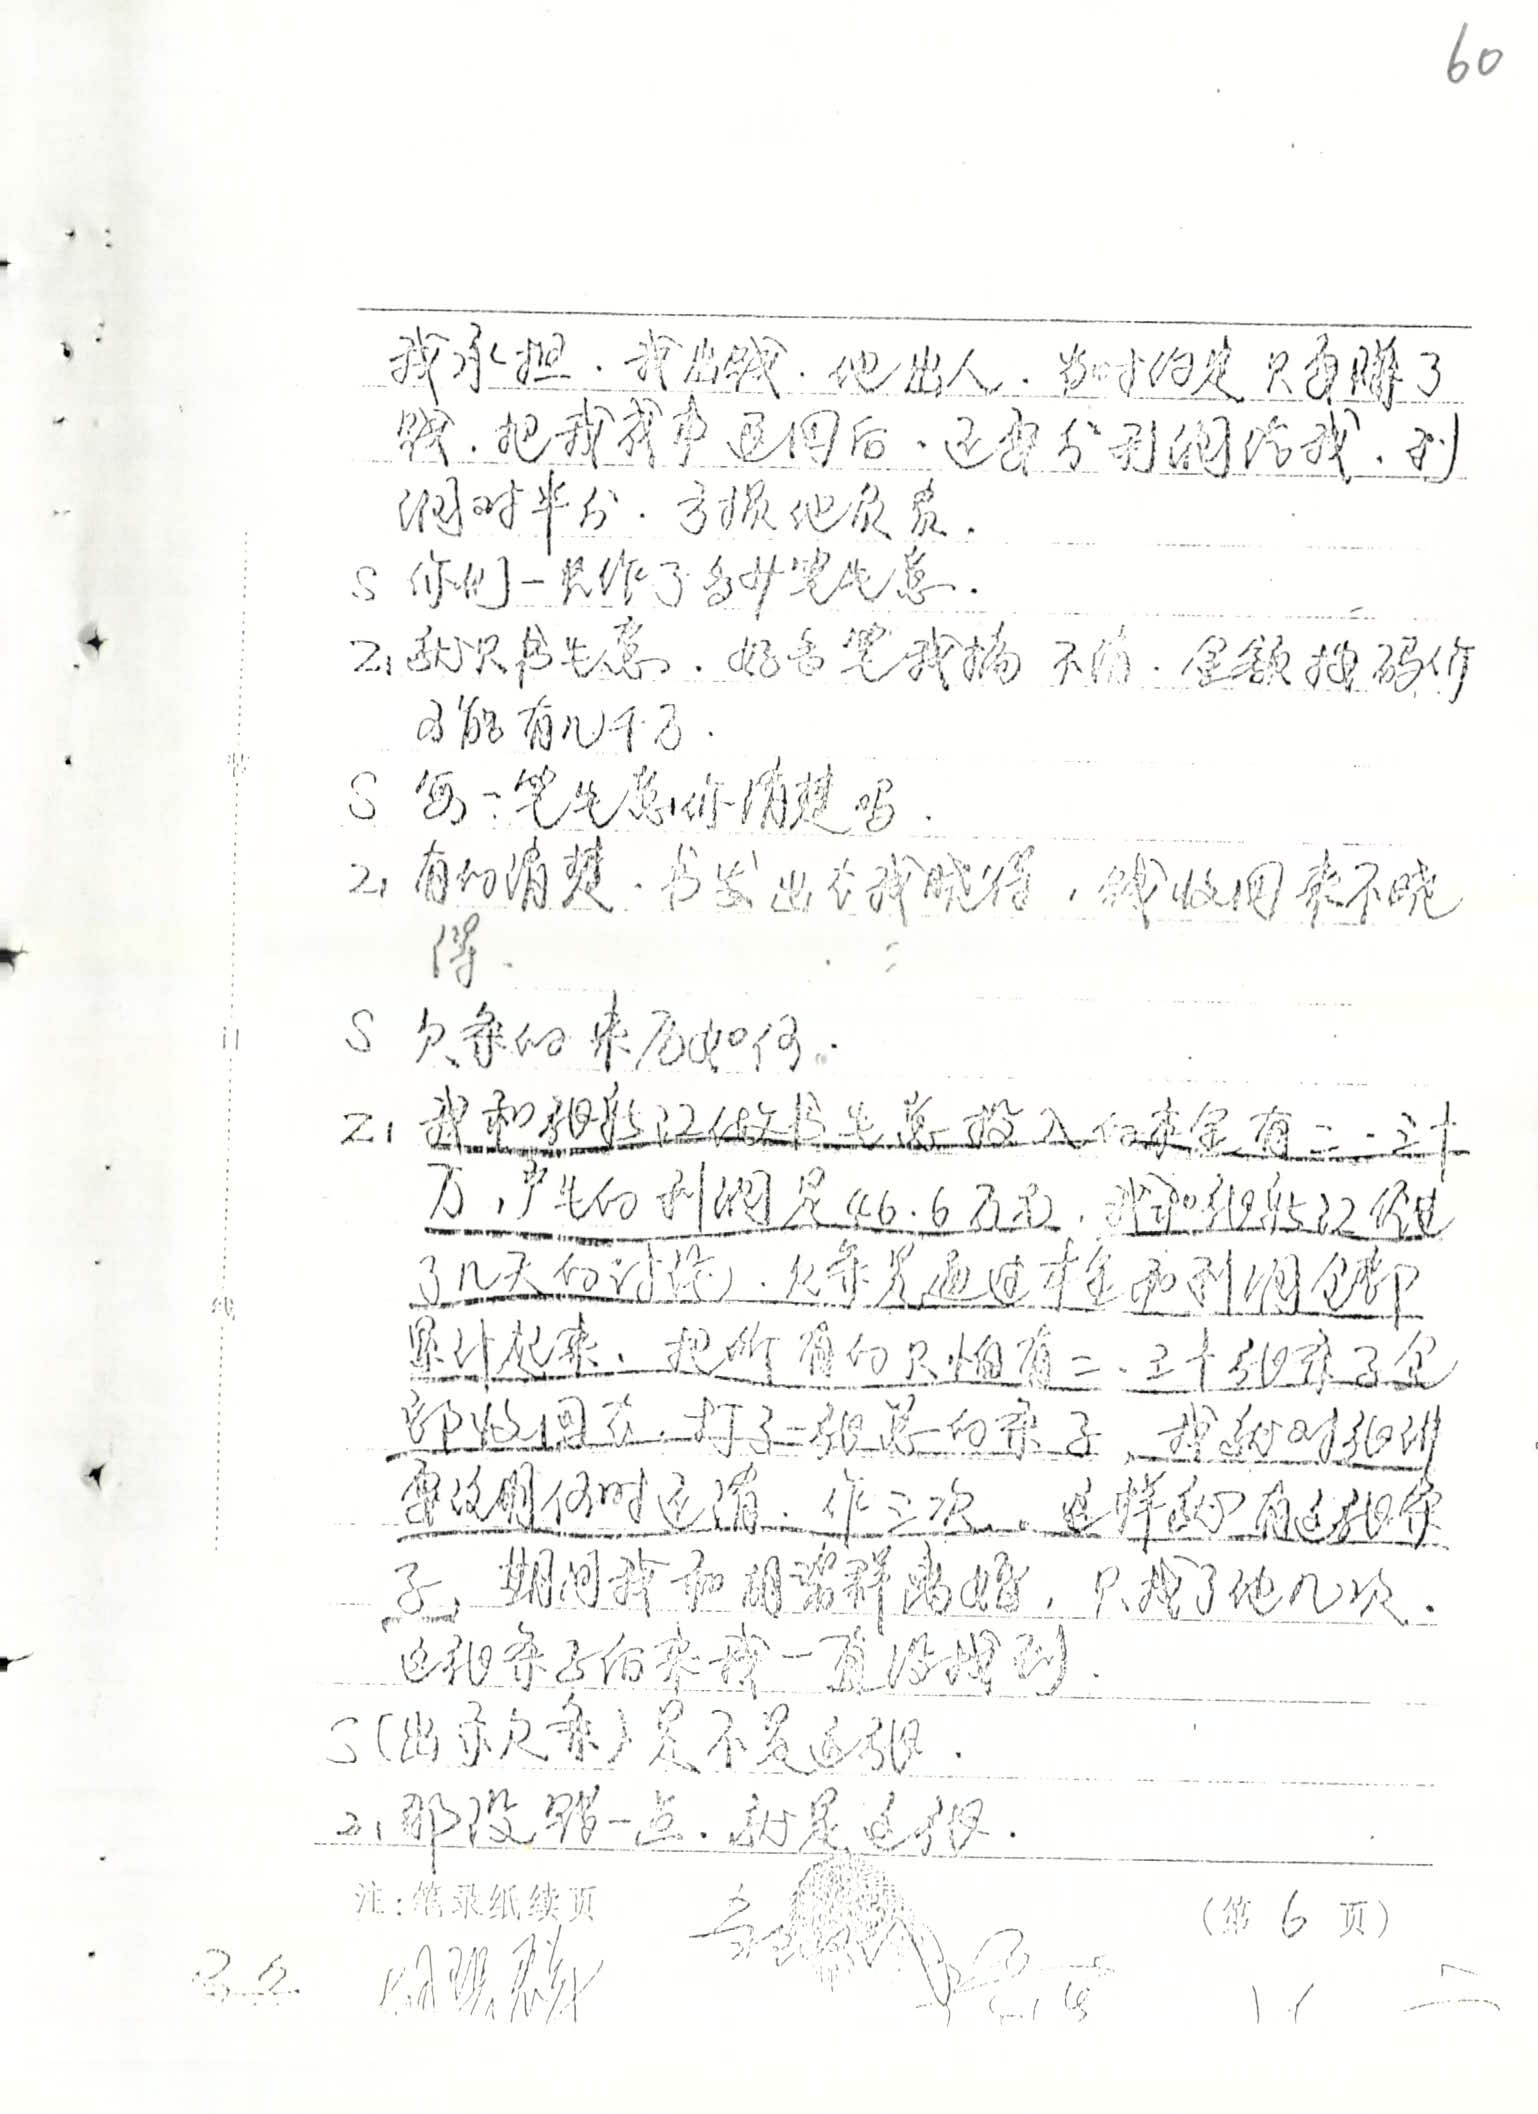 60
我承担. 我出钱. 他出人. 当时约定只要赚了
钱. 把我成本退回后. 还要分利润给我. 利
润对半分. 亏损他负责.
S 你们一共作了多少笔生意.
Z: 就只书生意. 好多笔我搞不清. 金额按码价
可能有几千万.
S 每一笔生意你清楚吗.
Z: 有的清楚. 书发出去我晓得, 钱收回来不晓
得.
S 欠条的来历如何.
Z: 我和张新江做书生意投入的本金有二.三十
万, 产生的利润是46.6万元. 我和张新江经过
了几天的讨论. 欠条是通过本金和利润全部
累计起来. 把所有的只怕有二.三十张条子全
部收回去. 打了一张总的条子, 我就对张讲
要说明何时还清. 作三次. 这样就有这张条
子, 期间我和胡群离婚. 只找了他几次.
这张条子后来我一直没找到.
S (出示欠条) 是不是这张.
Z: 那没错一点. 就是这张.
注: 笔录纸续页 (第 6 页)